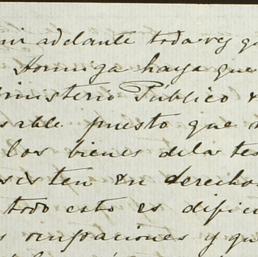 adelante toda vez q
Hormiga haya que
ministerio Publico
sable puesto que
los bienes de la tes
sisten en derechos
todo esto es dificu
y qu